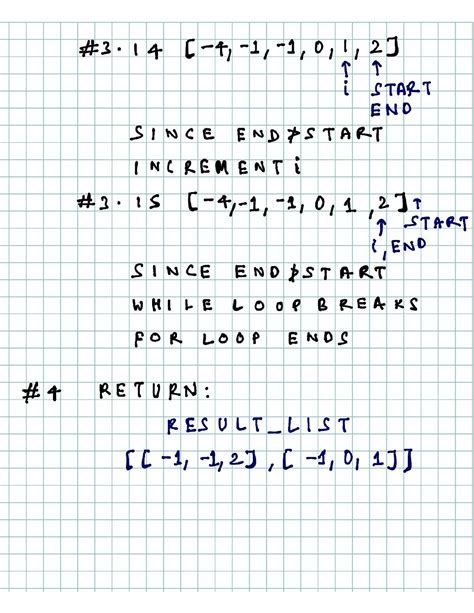 #3.14 [-4,-1,-1,0,1,2]
↑ ↑
i START
END
SINCE END≯START
INCREMENT i
#3.15 [-4,-1,-1,0,1,2]↑
↑ START
i,END
SINCE END≯START
WHILE LOOP BREAKS
FOR LOOP ENDS
#4 RETURN:
RESULT_LIST
[[-1,-1,2],[-1,0,1]]